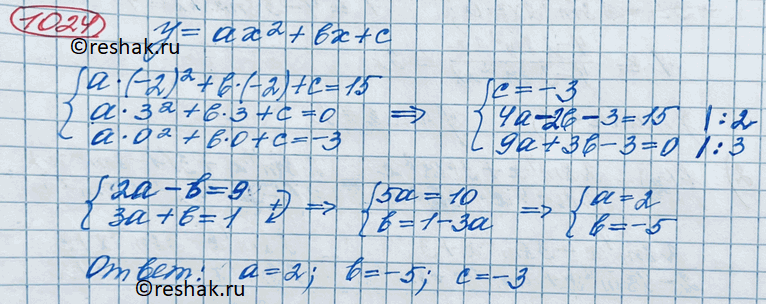 1024
y = ax² + bx + c
©reshak.ru
{ a·(-2)² + b·(-2) + c = 15
a·3² + b·3 + c = 0
a·0² + b·0 + c = -3
⇒
{ c = -3
4a - 2b - 3 = 15 |:2
9a + 3b - 3 = 0 |:3
{ 2a - b = 9
3a + b = 1 +
⇒
{ 5a = 10
b = 1 - 3a
⇒
{ a = 2
b = -5
Ответ: a = 2; b = -5; c = -3
©reshak.ru